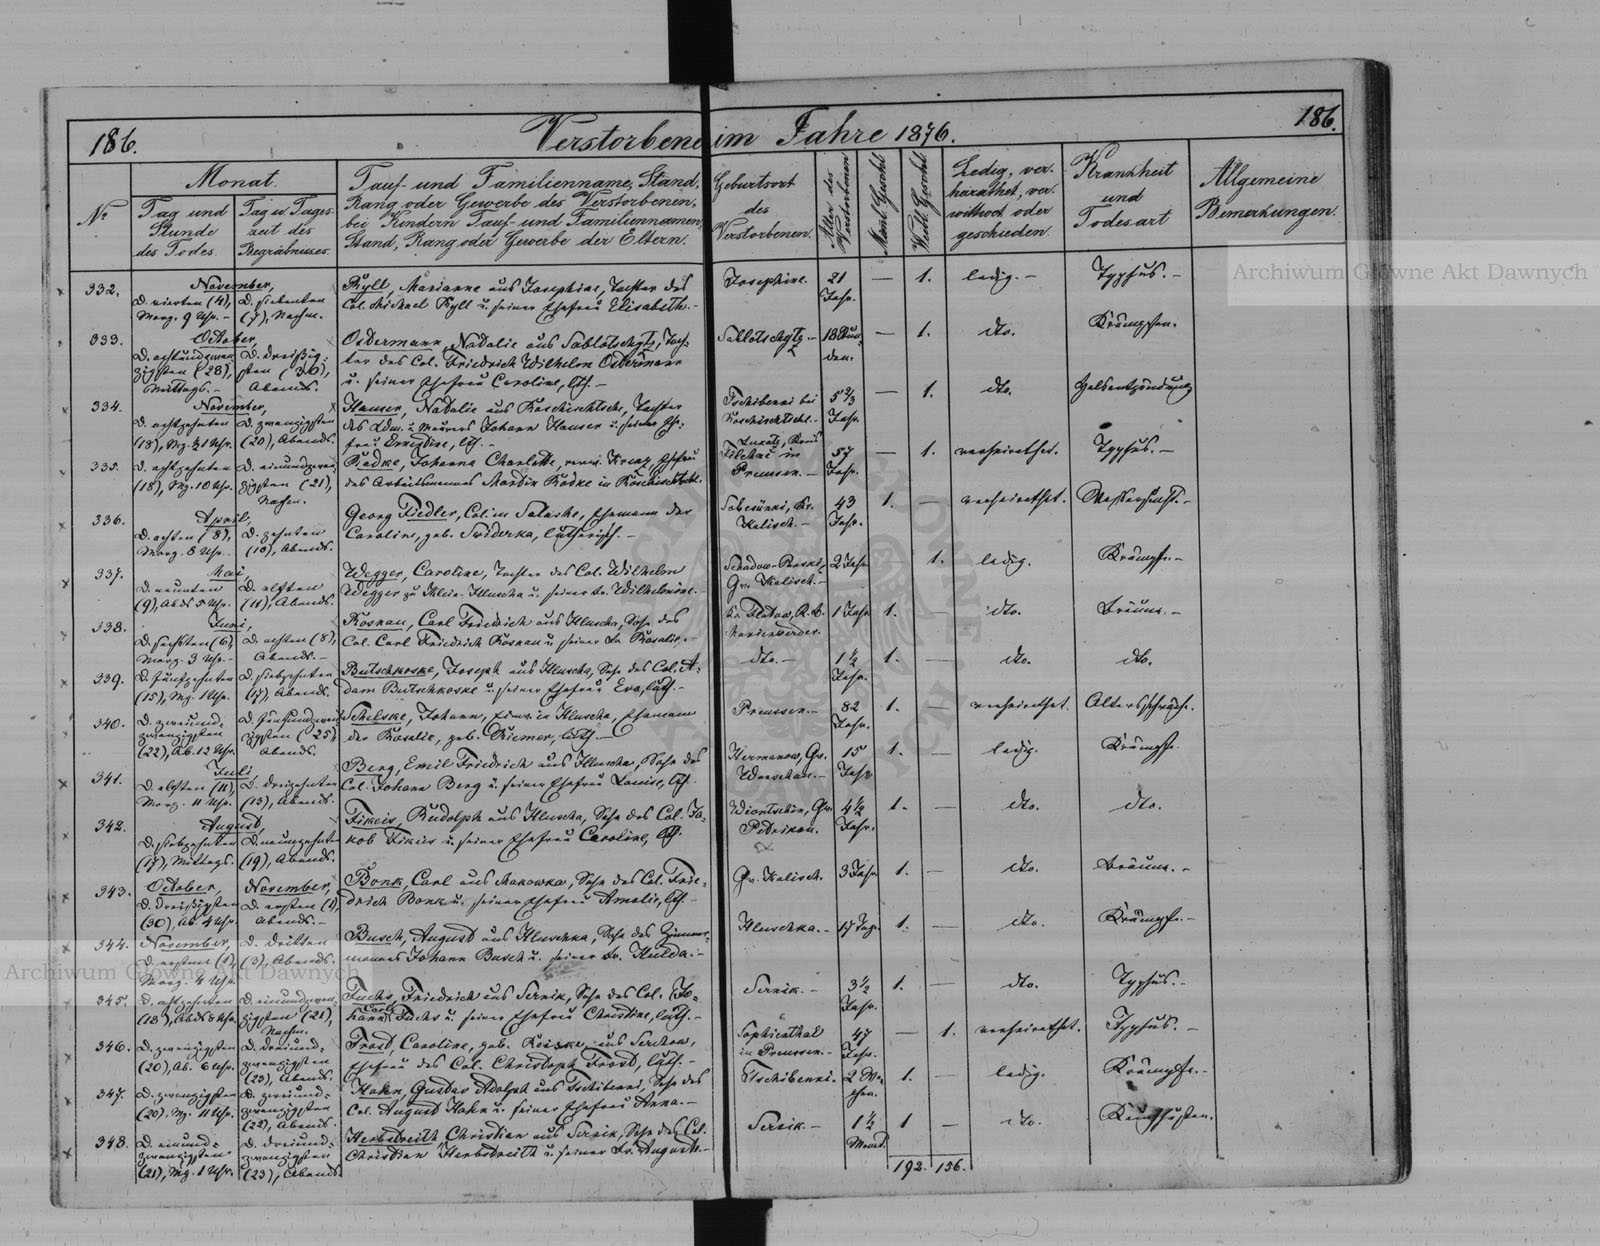 186.
Verstorbene im Jahre 1876.
186.
No
Monat.
Tag und
Stunde
des Todes.
Tag u. Tages-
zeit des
Begräbnisses.
Tauf- und Familienname, Stand,
Rang oder Gewerbe des Verstorbenen,
bei Kindern Tauf- und Familiennamen,
Stand, Rang oder Gewerbe der Eltern.
Geburtsort
des
Verstorbenen.
Alter des
Verstorbenen
Männl. Geschl.
Weibl. Geschl.
Ledig, ver-
heirathet, ver-
wittwet oder
geschieden
Krankheit
und
Todesart
Allgemeine
Bemerkungen.
332.
November,
D. vierten (4),
Morg. 9 Uhr. –
D. siebenten
(7), Nachm.
Ryll, Marianne aus Josephine, Tochter des
Col. Michael Ryll u. seiner Ehefrau Elisabeth. –
Josephine.
21
Jahr.
— 1.
ledig. –
Typhus. –
333.
October,
D. achtundzwan-
zigsten (28),
Mittags. –
D. dreißig-
sten (30),
Abends.
Ostermann, Natalie aus
ter des Col. Friedrich Wilhelm Ostermann
u. seiner Ehefrau Caroline, luth. –
18 Stun-
den.
— 1.
dto.
Krämpfen.
334.
November,
D. achtzehnten
(18), Mg. ½1 Uhr.
D. zwanzigsten
(20), Abends.
Hauser, Natalie aus Koschischtsche, Tochter
des u. Maurers Johann Hauser u. seiner Ehe-
frau Ernestine, luth. –
Tschibenni bei
5 2/3
Jahr.
— 1.
dto.
Halsentzündung
335.
D. achtzehnten
(18), Mg. 10 Uhr.
D. einundzwan-
zigsten (21),
Nachm.
Radke, Johanna Charlotte, Ehefrau
des Arbeitsmannes Martin Radke in
Filehne in
Preussen. –
57
Jahr.
— 1.
verheirathet.
Typhus. –
336.
April,
D. achten (8),
Morg. 8 Uhr.
D. zehnten
(10), Abends.
Georg Fiedler, Col. in Ehemann der
Caroline, geb. Swiderka, lutherisch. –
Kalisch. –
43
Jahr.
1. —
verheirathet.
Wassersucht. –
337.
Mai,
D. neunten
(9), Abds 5 Uhr.
D. elften
(11), Abends.
Wegger, Caroline, Tochter des Col. Wilhelm
Wegger zu Klein-Hluscha u. seiner Fr. Wilhelmine. –
Gv. Kalisch. –
2 Jahr.
— 1.
ledig.
Krämpfe. –
338.
Juni,
D. sechsten (6),
Morg. 3 Uhr. –
D. achten (8),
Abends. –
Rosnau, Carl Friedrich aus Hluscha, Sohn des
Col. Carl Friedrich Rosnau u. seiner Fr. Rosalie. –
Kr. Flatow, R. B.
Marienwerder.
1 Jahr
1. —
dto.
Bräune. –
339.
D. fünfzehnten
(15), Mg. 1 Uhr.
D. siebzehnten
(17), Abends.
Butschkoske, Joseph aus Hluscha, Sohn des Col. A-
dam Butschkoske u. seiner Ehefrau Eva, luth. –
dto. –
1 ½
Jahr.
1. —
dto.
dto.
340.
D. zweiund-
zwanzigsten
(22), Ab. 12 Uhr.
D. fünfundzwan-
zigsten (25),
Abends.
Schelske, Johann, in Hluscha, Ehemann
der Rosalie, geb. Riemer, luth. –
Preussen. –
82
Jahr.
1. —
verheirathet.
Altersschwäche.
341.
Juli,
D. elften (11),
Morg. 11 Uhr.
D. dreizehnten
(13), Abends.
Berg, Emil Friedrich aus Hluscha, Sohn des
Col. Johann Berg u. seiner Ehefrau Louise, luth.
Hermanow, Gv.
Warschau. –
15
Jahr
1. —
ledig.
Krämpfe.
342.
August,
D. siebzehnten
(17), Mittags.
D. neunzehnten
(19), Abends.
Fikeis, Rudolph aus Hluscha, Sohn des Col. Ja-
kob Fikeis u. seiner Ehefrau Caroline, luth.
Gv.
Petrikau.
4 ½
Jahr.
1. —
dto.
dto.
343.
October,
D. dreißigsten
(30), Ab. 4 Uhr.
November,
D. ersten (1),
Abends. –
Bonk, Carl aus Makowka, Sohn des Col. Frie-
drich Bonk u. seiner Ehefrau Amalie, luth. –
Gv. Kalisch.
3 Jahr
1. —
dto.
Bräune. –
344.
November,
D. ersten (1),
Morg. 4 Uhr.
D. dritten
(3), Abends.
Busch, August aus Hluschka, Sohn des Zimmer-
mannes Johann Busch u. seiner Fr. Hulda. –
Hluschka. –
17 Tage.
1. —
dto.
Krämpfe. –
345.
D. achtzehnten
(18), Abds 8 Uhr.
D. einundzwan-
zigsten (21),
Nachm.
Fuchs, Friedrich aus Sernik, Sohn des Col. Jo-
hann Carl Fuchs u. seiner Ehefrau Christine, luth. –
Sernik. –
3 ½
Jahr.
1. —
dto.
Typhus. –
346.
D. zwanzigsten
(20), Ab. 6 Uhr.
D. dreiund-
zwanzigsten
(23), Abends.
Frost, Caroline, geb. aus
Ehefrau des Col. Christoph Frost, luth. –
Sophienthal
in Preussen. –
47
Jahr.
— 1.
verheirathet.
Typhus. –
347.
D. zwanzigsten
(20), Mg. 11 Uhr.
D. zweiund-
zwanzigsten
(22), Abends.
Hahn, Gustav Adolph aus Tschibenni, Sohn des
Col. August Hahn u. seiner Ehefrau Anna. –
Tschibenni. –
2 Wo-
chen.
1. —
ledig.
Krämpfe. –
348.
D. einund-
zwanzigsten
(21), Mg. 1 Uhr.
D. dreiund-
zwanzigsten
(23), Abends
Herbstreith, Christian aus Sernik, Sohn des Col.
Christian Herbstreith u. seiner Fr. Auguste. –
Sernik. –
1 ½
Monat.
1 —
dto.
Keuchhusten.
192. 156.
Archiwum Główne Akt Dawnych
Archiwum Główne Akt Dawnych